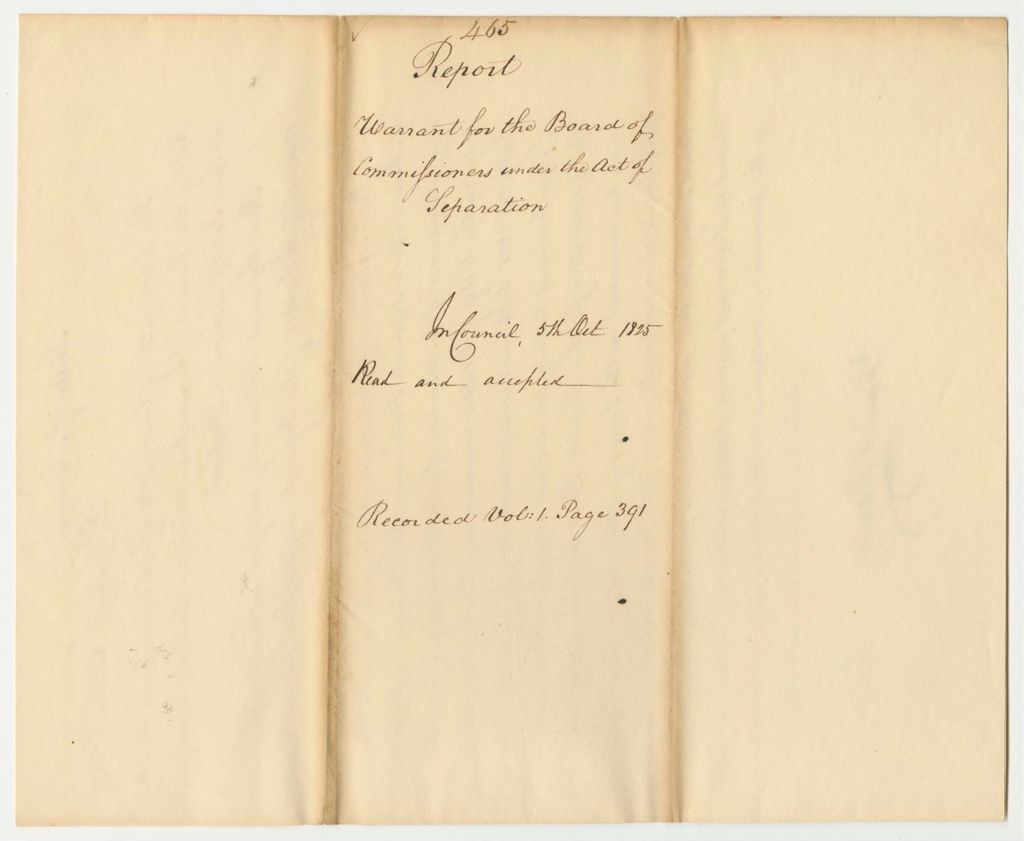 465
Report
Warrant for the Board of
Commissioners under the Act of
Separation
In Council, 5th Oct 1825
Read and accepted
Recorded Vol: 1. Page 391